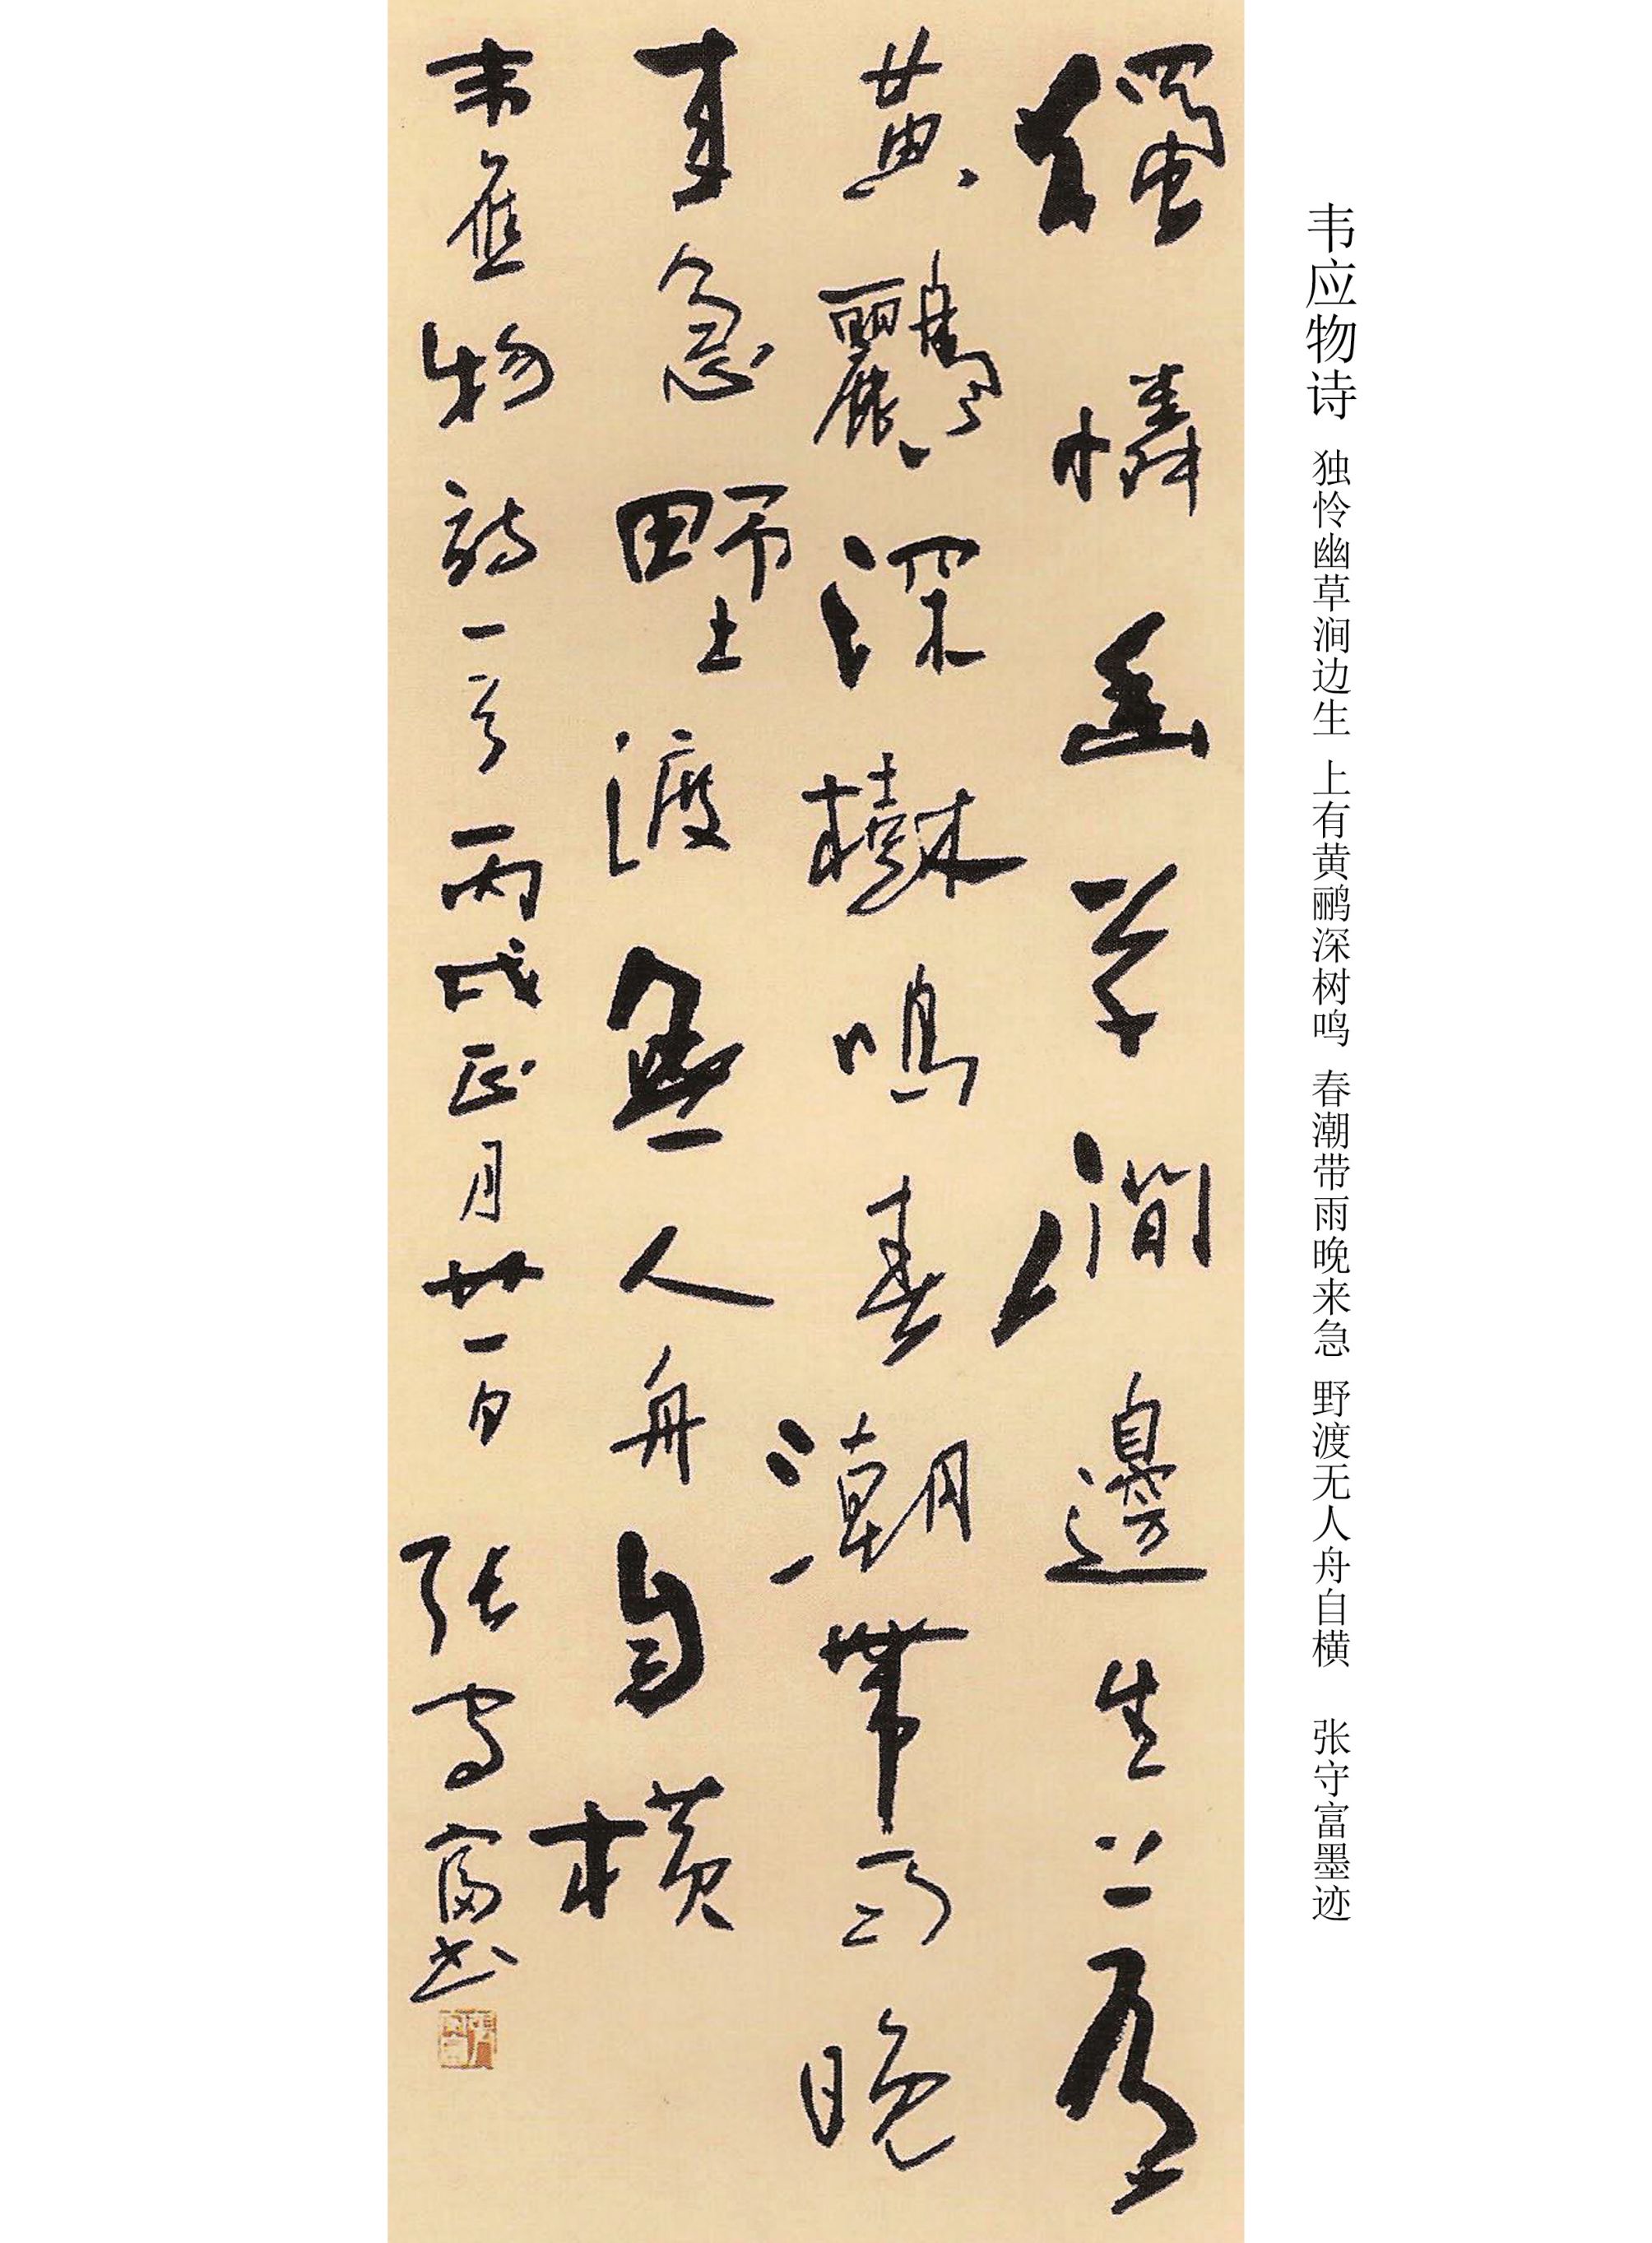 韦应物诗 独怜幽草涧边生 上有黄鹂深树鸣 春潮带雨晚来急 野渡无人舟自横 张守富墨迹
獨憐幽草澗邊生上有
黃鸝深樹鳴春潮帶雨晚
來急野渡無人舟自橫
韋應物詩一首丙戌正月廿一日張守富書